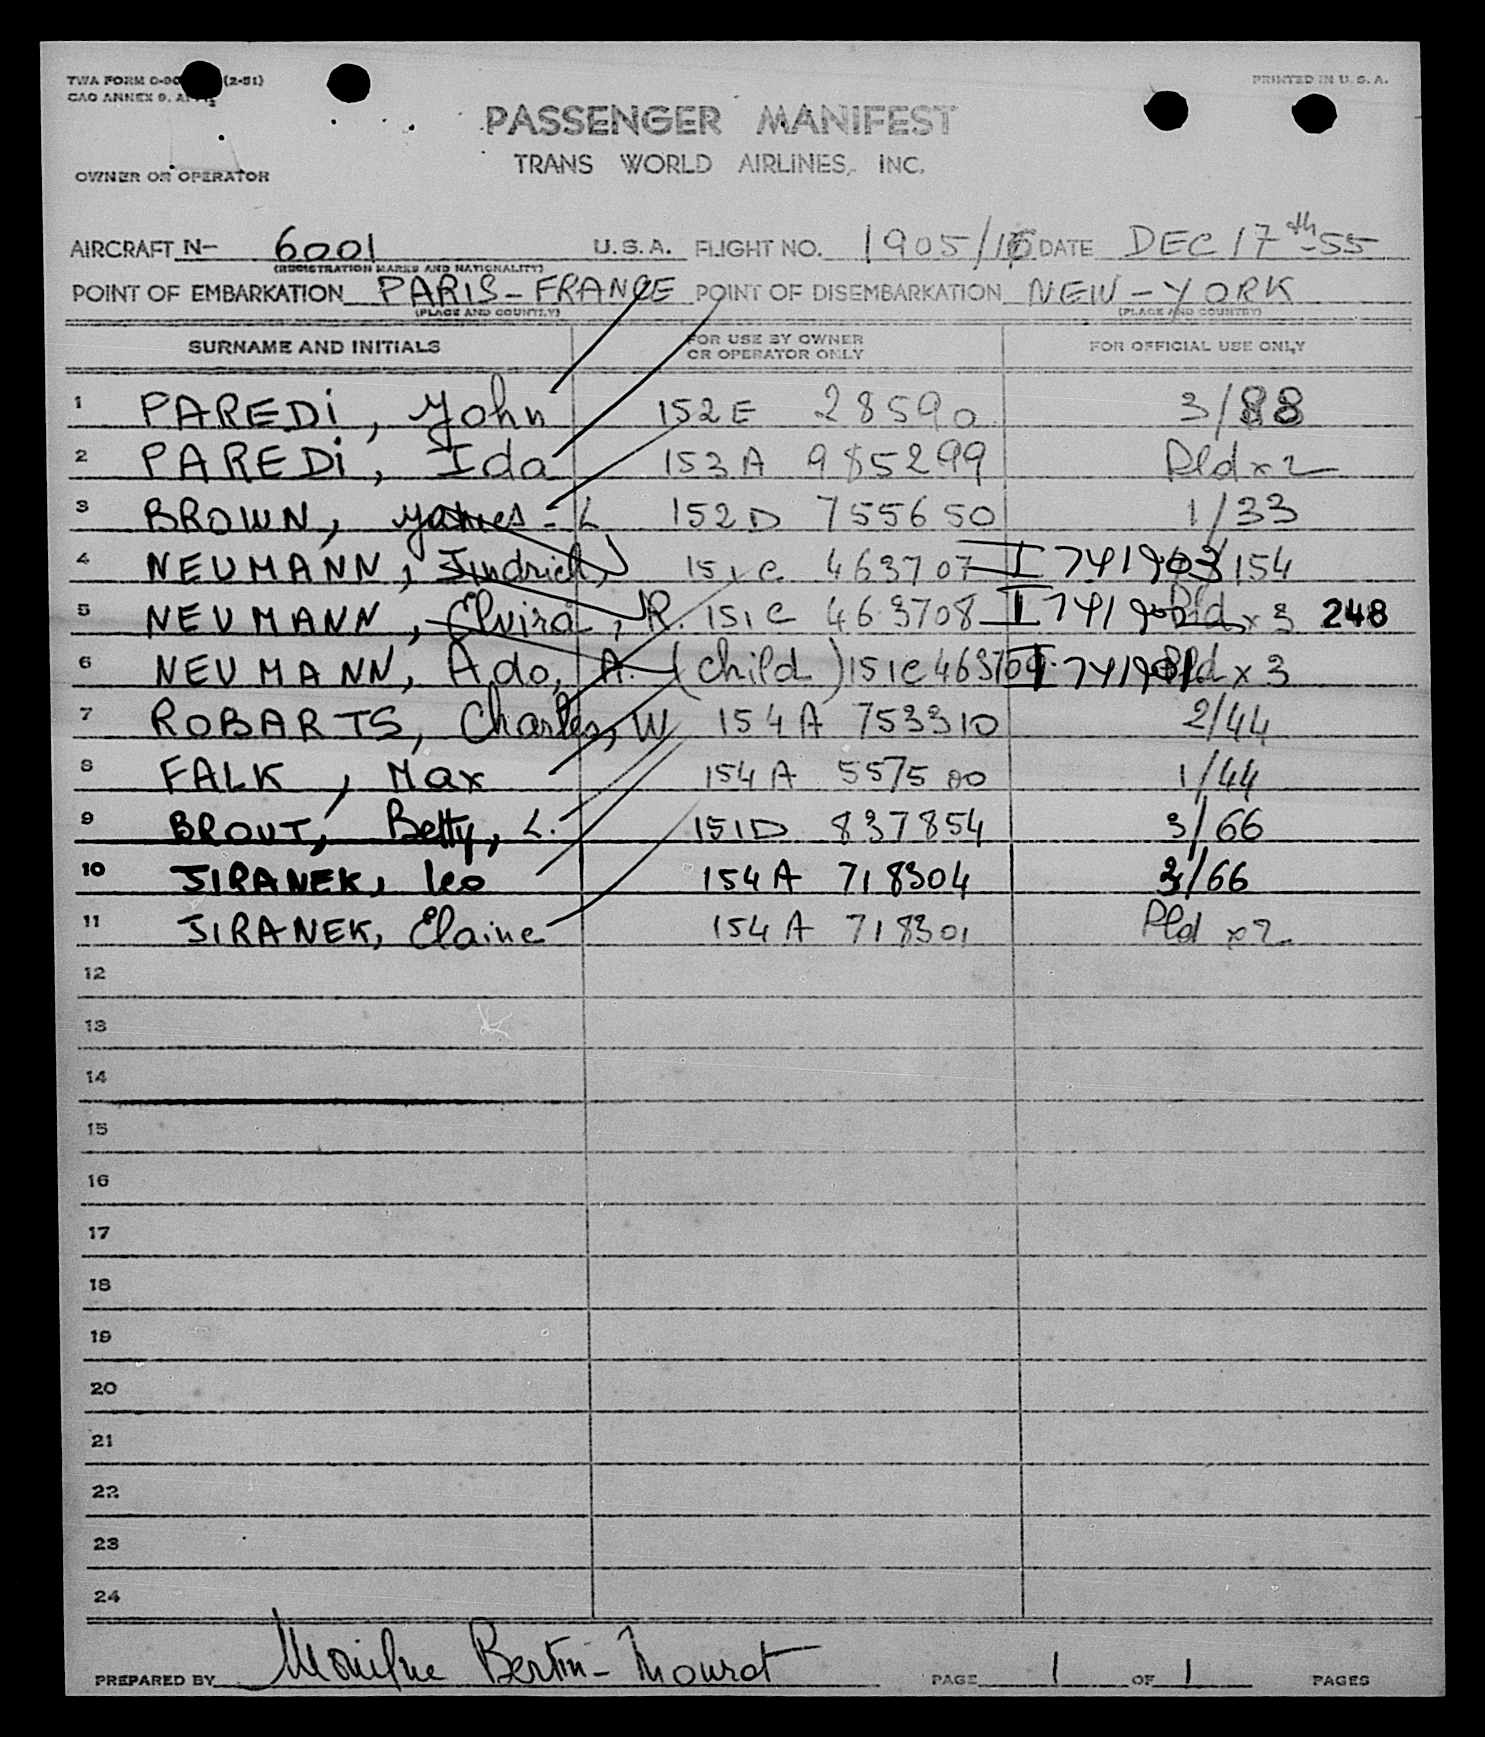 TWA FORM (2-51) PRINTED IN U. S. A.
CAO ANNEX 9,
PASSENGER MANIFEST
TRANS WORLD AIRLINES, INC.
OWNER OR OPERATOR
AIRCRAFT N- 6001 U.S.A. FLIGHT NO. 1905/16 DATE DEC 17th-55
(REGISTRATION MARKS AND NATIONALITY)
POINT OF EMBARKATION PARIS-FRANCE POINT OF DISEMBARKATION NEW-YORK
(PLACE AND COUNTRY) (PLACE AND COUNTRY)
SURNAME AND INITIALS FOR USE BY OWNER OR OPERATOR ONLY FOR OFFICIAL USE ONLY
1 PAREDi, John 152E 28590 3/88
2 PAREDi, Ida 153A 985299 Pld x 2
3 BROWN, James - L 152D 755650 1/33
4 NEUMANN, Jindrich, 151C 463707 I 741903 154
5 NEUMANN, Elvira, R. 151C 463708 I 741902 Pld x 3 248
6 NEUMANN, Ado, A. (child) 151C 463709 I 741901 Pld x 3
7 ROBARTS, Charles, W 154A 753310 2/44
8 FALK, Max 154A 557500 1/44
9 BROUT, Betty, L. 151D 837854 3/66
10 JIRANEK, Leo 154A 718304 3/66
11 JIRANEK, Elaine 154A 718301 Pld x 2
12
13
14
15
16
17
18
19
20
21
22
23
24
PREPARED BY Monique Bertin-Mourot PAGE 1 OF 1 PAGES